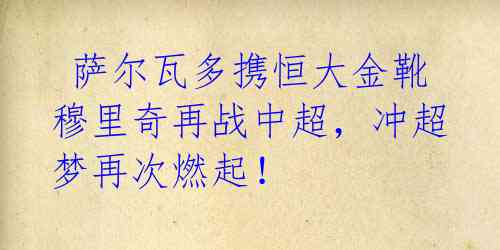 萨尔瓦多携恒大金靴
穆里奇再战中超，冲超
梦再次燃起！